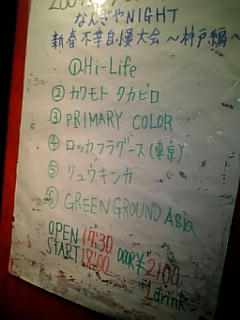 なんぎやNIGHT
新春不幸自慢大会〜神戸編〜
①Hi-Life
②カワモトタカヒロ
③PRIMARY COLOR
④ロッカフラグース(東京)
⑤リュウキンカ
⑥GREENGROUND Asia
OPEN 17:30
START 18:00
DOOR ¥2100
1drink